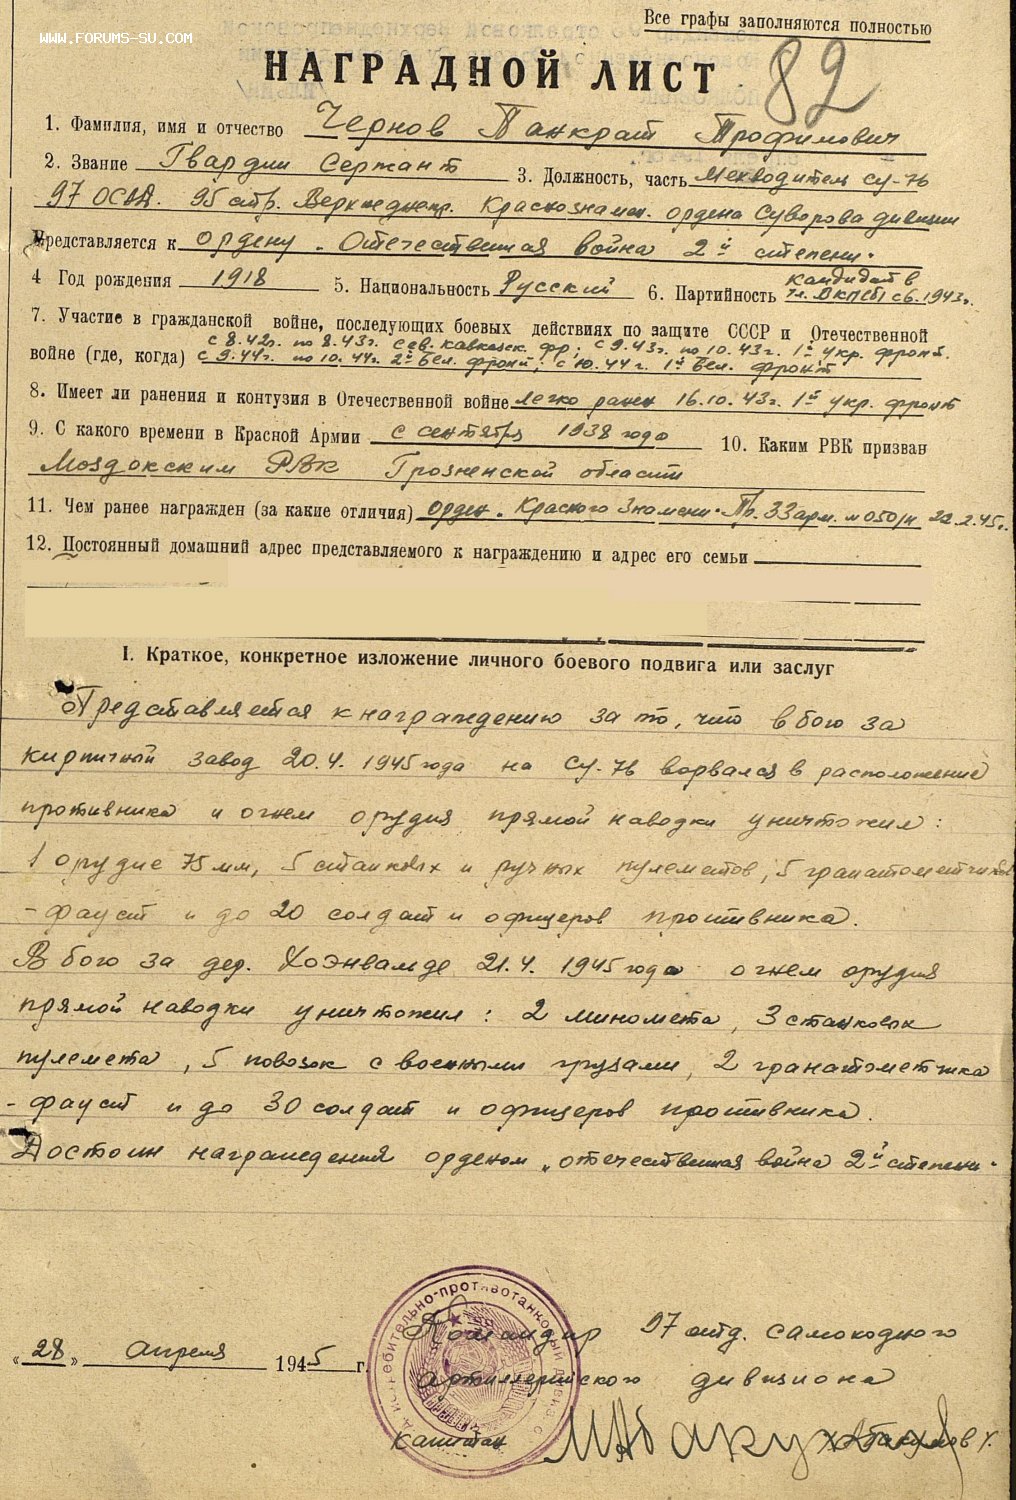 WWW.FORUMS-SU.COM
Все графы заполняются полностью
НАГРАДНОЙ ЛИСТ
82
1. Фамилия, имя и отчество Чернов Панкрат Трофимович
2. Звание Гвардии Сержант 3. Должность, часть Мехводитель СУ-76
97 ОСАД. 95 стр. Верхнеднепр. Краснознамен. ордена Суворова дивизии
Представляется к ордену „Отечественная война 2й степени"
4 Год рождения 1918 5. Национальность Русский 6. Партийность кандидат в
чл. ВКП(б) с 6.1943г.
7. Участие в гражданской войне, последующих боевых действиях по защите СССР и Отечественной
с 8.42г. по 8.43г. Сев. Кавказск. фр; с 9.43г. по 10.43г. 1й Укр. фронт.
войне (где, когда) с 9.44г. по 10.44г. 2й Бел. фронт; с 10.44г. 1й Бел. фронт
8. Имеет ли ранения и контузии в Отечественной войне легко ранен 16.10.43г. 1й Укр. фронт
9. С какого времени в Красной Армии с сентября 1938 года 10. Каким РВК призван
Моздокским РВК Грозненской области
11. Чем ранее награжден (за какие отличия) орден „Красного Знамени" Пр. 33 арм. №050/н 22.2.45г.
12. Постоянный домашний адрес представляемого к награждению и адрес его семьи
I. Краткое, конкретное изложение личного боевого подвига или заслуг
Представляется к награждению за то, что в бою за
кирпичный завод 20.4.1945 года на СУ-76 ворвался в расположение
противника и огнем орудия прямой наводки уничтожил:
1 орудие 75 мм, 5 станковых и ручных пулеметов, 5 гранатометчиков
-фауст и до 20 солдат и офицеров противника.
В бою за дер. Хоэнвальде 21.4.1945 года огнем орудия
прямой наводки уничтожил: 2 миномета, 3 станковых
пулемета, 5 повозок с военными грузами, 2 гранатометчика
-фауст и до 30 солдат и офицеров противника.
Достоин награждения орденом „Отечественная война 2й степени"
Командир 97 отд. самоходного
„28" апреля 1945 г.
артиллерийского дивизиона
Капитан